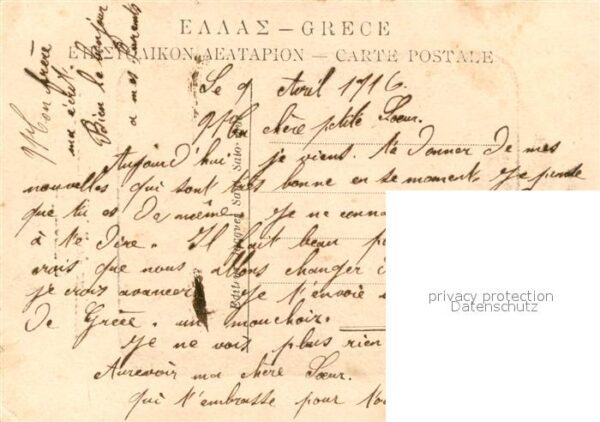 ΕΛΛΑΣ – GRECE
ΕΠΙΣΤΟΛΙΚΟΝ ΔΕΛΤΑΡΙΟΝ – CARTE POSTALE
Le 9 Avril 1916
Mon frère
ma écrit.
Bien le bonjour
a mes Parents
Ma chère petite Sœur.
Aujourd'hui je viens te donner de mes
nouvelles qui sont très bonne en se moment. Je pense
que tu es de même. Je ne
à te dire. Il fait beau
vrais que nous allons changer
je crois avancer Je t'envoie
de Grèce. un mouchoir.
Je ne vois plus rien
Aurevoir ma chère Sœur.
qui t'embrasse pour
privacy protection
Datenschutz